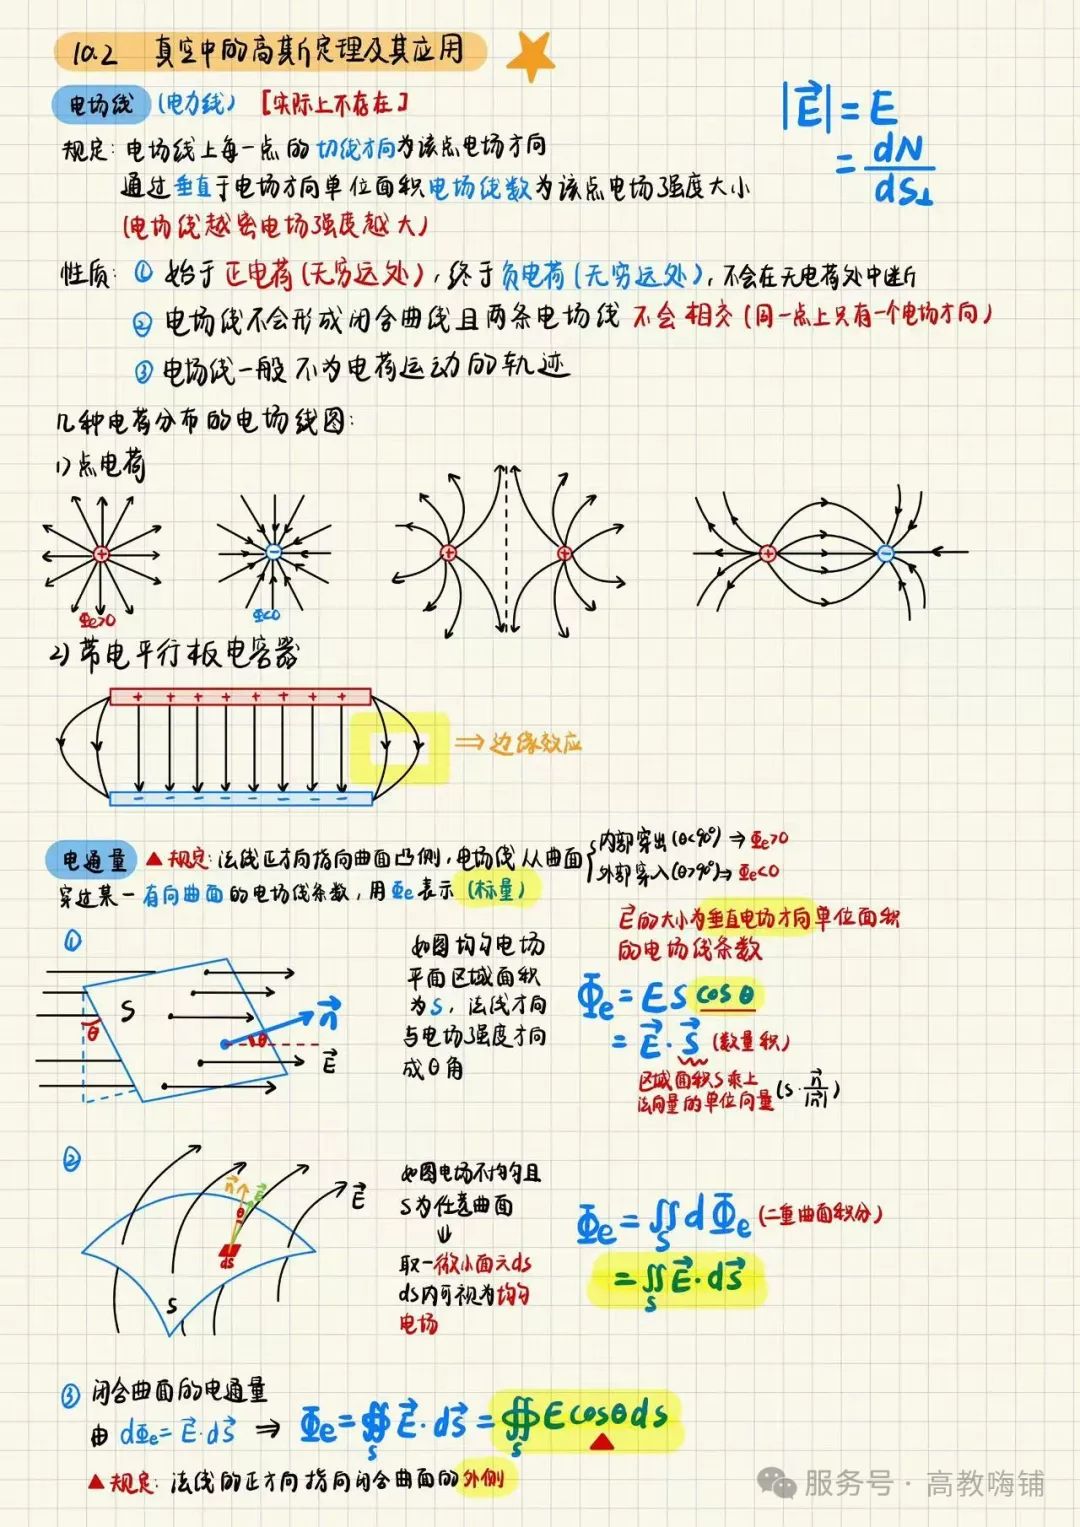 10.2 真空中的高斯定理及其应用
电场线 (电力线) [实际上不存在]
|E⃗| = E
= dN/dS⊥
规定: 电场线上每一点的切线方向为该点电场方向
通过垂直于电场方向单位面积电场线数为该点电场强度大小
(电场线越密电场强度越大)
性质: ① 始于正电荷(无穷远处), 终于负电荷(无穷远处), 不会在无电荷处中断
② 电场线不会形成闭合曲线且两条电场线 不会相交(同一点上只有一个电场方向)
③ 电场线一般不为电荷运动的轨迹
几种电荷分布的电场线图:
1) 点电荷
+
-
+ +
+ -
Φe>0
Φ<0
2) 带电平行板电容器
+ + + + + + + +
- - - - - - - -
⇒ 边缘效应
电通量 ▲规定: 法线正方向指向曲面凸侧, 电场线从曲面{内部穿出(θ<90°) ⇒ Φe>0
外部穿入(θ>90°) ⇒ Φe<0
穿过某一有向曲面的电场线条数, 用Φe表示 (标量)
①
S
θ
n⃗
θ
E⃗
如图均匀电场
平面区域面积
为S, 法线方向
与电场强度方向
成θ角
E⃗的大小为垂直电场方向单位面积
的电场线条数
Φe = ES cosθ
= E⃗·S⃗ (数量积)
区域面积S乘上
法向量的单位向量 (S·n⃗/|n⃗|)
②
n⃗
E⃗
θ
ds
S
E⃗
如图电场不均匀且
S为任意曲面
⇓
取一微小面元ds
ds内可视为均匀
电场
Φe = ∬S dΦe (二重曲面积分)
= ∬S E⃗·dS⃗
③ 闭合曲面的电通量
由 dΦe = E⃗·dS⃗ ⇒ Φe = ∯S E⃗·dS⃗ = ∯S E cosθ ds
▲
▲规定: 法线的正方向指向闭合曲面的外侧
服务号 · 高教嗨铺